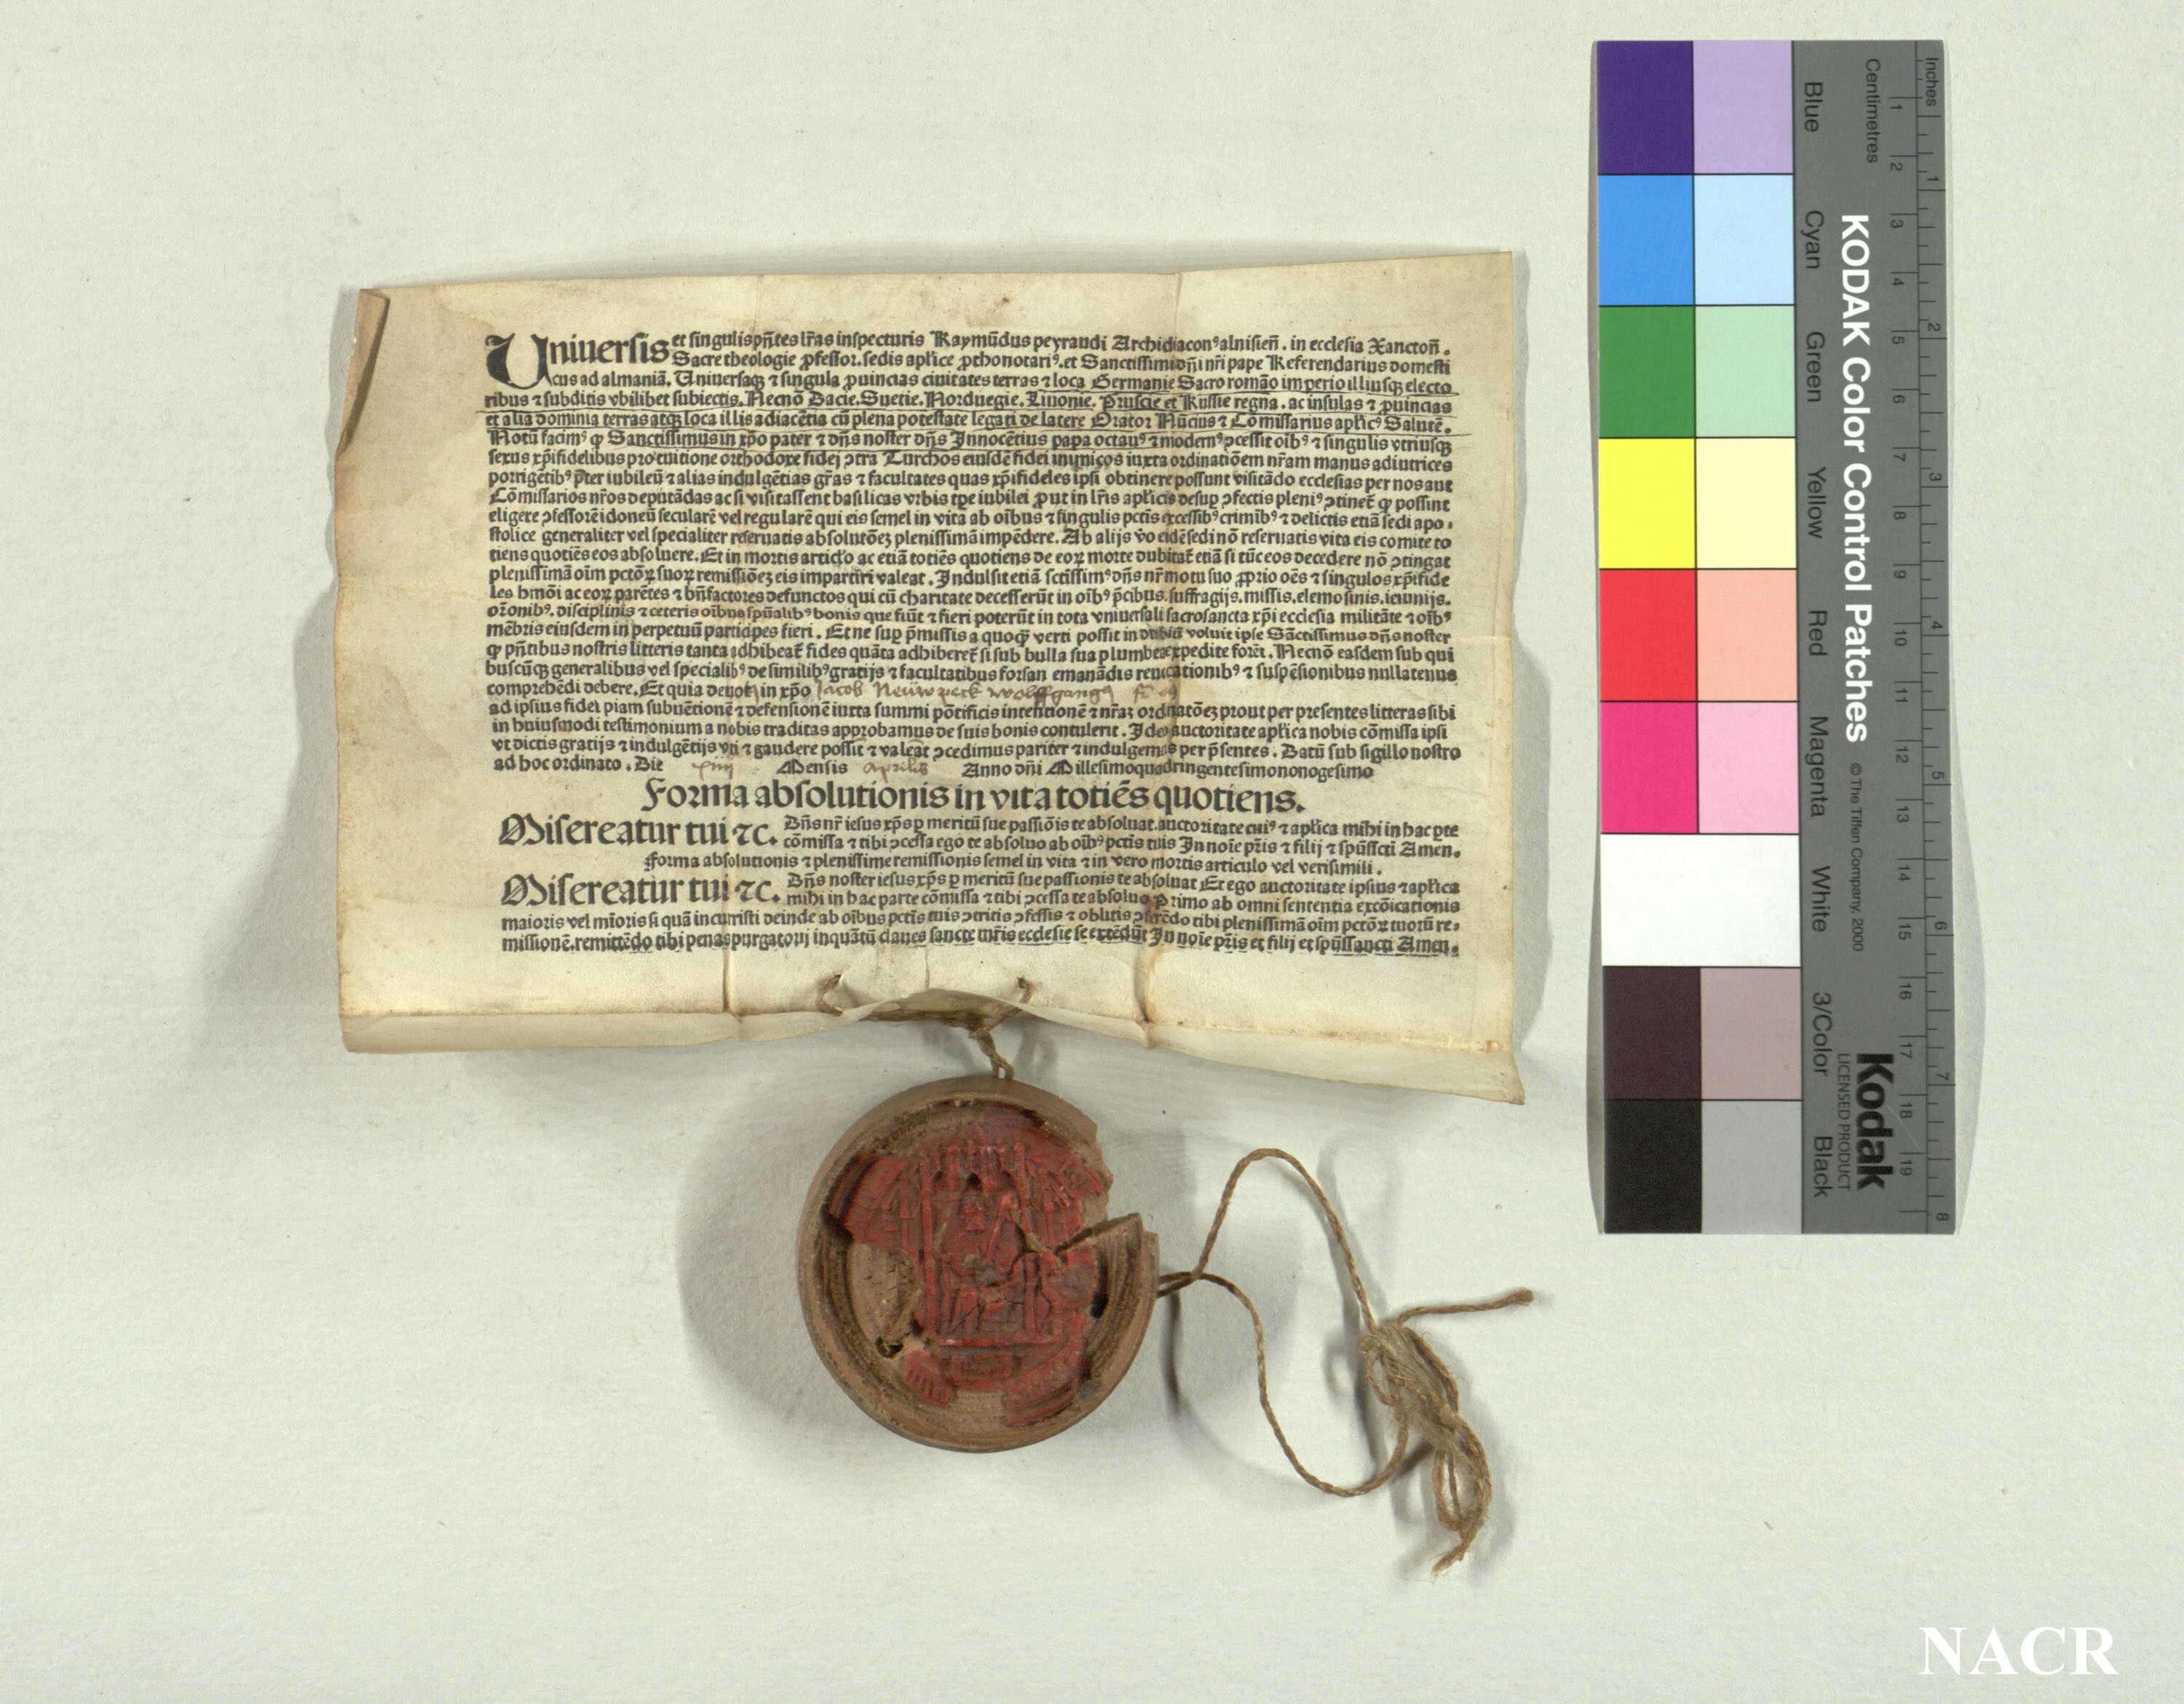 Uniuersis et singulis pñtes lr̃as inspecturis Raymũdus peyraudi Archidiacon⁹ alnisieñ. in ecclesia Xanctoñ.
Sacre theologie ꝓfessor. sedis apl'ice ꝓthonotari⁹. et Sanctissimi dñi nr̃i pape Referendarius domesti
cus ad almaniã. Uniuersaqꝫ ⁊ singula ꝓuincias ciuitates terras ⁊ loca Germanie Sacro romão imperio illiusqꝫ electo
ribus ⁊ subditis vbilibet subiectis. Necnõ Dacie. Suetie. Noruegie. Liuonie. Pruscie et Russie regna. ac insulas ⁊ ꝓuincias
et alia dominia terras atqꝫ loca illis adiacẽtia cũ plena potestate legati de latere Orator Nũcius ⁊ Cõmissarius apl'ic⁹ Salutẽ.
Notũ facim⁹ ꝙ Sanctissimus in xp̃o pater ⁊ dñs noster dñs Innocẽtius papa octau⁹ ⁊ modern⁹ ꝯcessit oĩb⁹ ⁊ singulis vtriusqꝫ
sexus xp̃ifidelibus pro tuitione orthodoxe fidei ꝯtra Turchos eiusdẽ fidei inimicos iuxta ordinatiõem nr̃am manus adiutrices
porrigẽtib⁹ p̃ter iubileũ ⁊ alias indulgẽtias gr̃as ⁊ facultates quas xp̃ifideles ipsi obtinere possunt visitãdo ecclesias per nos aut
Cõmissarios nr̃os deputãdas ac si visitassent basilicas vrbis tp̃e iubilei ꝓut in lr̃is apl'icis desuꝑ ꝯfectis pleni⁹ ꝯtinet̃ ꝙ possint
eligere ꝯfessorẽ idoneũ secularẽ vel regularẽ qui eis semel in vita ab oĩbus ⁊ singulis pctĩs excessib⁹ crimĩb⁹ ⁊ delictis etiã sedi apo-
stolice generaliter vel specialiter reseruatis absolutõeꝫ plenissimã impẽdere. Ab alijs v̾o eidẽ sedi nõ reseruatis vita eis comite to
tiens quotiẽs eos absoluere. Et in mortis articĺo ac etiã totiẽs quotiens de eoꝝ morte dubitat̃ etiã si tũc eos decedere nõ ꝯtingat
plenissimã oĩm pctõꝝ suoꝝ remissiõeꝫ eis impartiri valeat. Indulsit etiã sctĩssim⁹ dñs nr̃ motu suo ꝓprio oẽs ⁊ singulos xp̃ifide
les hmõi ac eoꝝ parẽtes ⁊ bñfactores defunctos qui cũ charitate decesserũt in oĩb⁹ p̃cibus. suffragijs. missis. elemosinis. ieiunijs.
or̃onib⁹. disciplinis ⁊ ceteris oĩbus spũalib⁹ bonis que fiũt ⁊ fieri poterũt in tota vniuersali sacrosancta xp̃i ecclesia militãte ⁊ oĩb⁹
mẽbris eiusdem in perpetuũ participes fieri. Et ne suꝑ p̃missis a quoqꝫ verti possit in dubiũ voluit ipse Sãctissimus dñs noster
ꝙ pñtibus nostris litteris tanta adhibeat̃ fides quãta adhiberet̃ si sub bulla sua plumbea expedite forẽt. Necnõ easdem sub qui
buscũqꝫ generalibus vel specialib⁹ de similib⁹ gratijs ⁊ facultatibus forsan emanãdis reuocationib⁹ ⁊ suspẽsionibus nullatenus
comprehẽdi debere. Et quia deuot⁹ in xp̃o Jacob Wolffgang⁹
ad ipsius fidei piam subuẽtionẽ ⁊ defensionẽ iuxta summi põtificis intentionẽ ⁊ nr̃aꝫ ordinatõeꝫ prout per presentes litteras sibi
in huiusmodi testimonium a nobis traditas approbamus de suis bonis contulerit. Ideo auctoritate apl'ica nobis cõmissa ipsi
vt dictis gratijs ⁊ indulgẽtijs vti ⁊ gaudere possit ⁊ valeat ꝯcedimus pariter ⁊ indulgemus per p̃sentes. Datũ sub sigillo nostro
ad hoc ordinato. Die xiiij Mensis aprilis Anno dñi Millesimoquadringentesimononogesimo
Forma absolutionis in vita totiẽs quotiens.
Misereatur tui ⁊c. Dñs nr̃ iesus xp̃s ꝑ meritũ sue passiõis te absoluat. auctoritate cui⁹ ⁊ apl'ica mihi in hac ꝑte
cõmissa ⁊ tibi ꝯcessa ego te absoluo ab oĩb⁹ pctĩs tuis In noĩe pr̃is ⁊ filij ⁊ spũssctĩ Amen.
Forma absolutionis ⁊ plenissime remissionis semel in vita ⁊ in vero mortis articulo vel verisimili.
Misereatur tui ⁊c. Dñs noster iesus xp̃s ꝑ meritũ sue passionis te absoluat Et ego auctoritate ipsius ⁊ apl'ica
mihi in hac parte cõmissa ⁊ tibi ꝯcessa te absoluo Primo ab omni sententia excõicationis
maioris vel mĩoris si quã incurristi deinde ab oĩbus pctĩs tuis ꝯtritis ꝯfessis ⁊ oblitis ꝯferẽdo tibi plenissimã oĩm pctõꝝ tuorũ re-
missionẽ. remittẽdo tibi penas purgatorij inquãtũ claues sancte mr̃is ecclesie se extẽdũt In noĩe pr̃is et filij et spũssancti Amen.
Inches
Centimetres
1 2 3 4 5 6 7 8
1 2 3 4 5 6 7 8 9 10 11 12 13 14 15 16 17 18 19
KODAK Color Control Patches
© The Tiffen Company, 2000
Kodak
LICENSED PRODUCT
Blue
Cyan
Green
Yellow
Red
Magenta
White
3/Color
Black
NACR